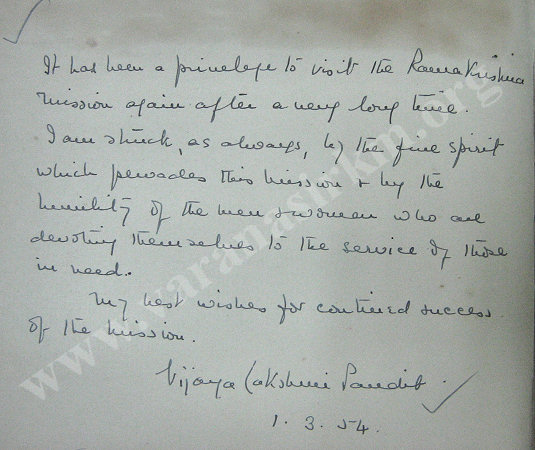 It has been a privelege to visit the RamaKrishna
Mission again after a very long time.
I am struck, as always, by the fine spirit
which pervades this Mission & by the
humility of the men & women who are
devoting themselves to the service of those
in need.
My best wishes for contined success
of the Mission.
Vijaya Lakshmi Pandit.
1.3.54.
www.varanasirkm.org